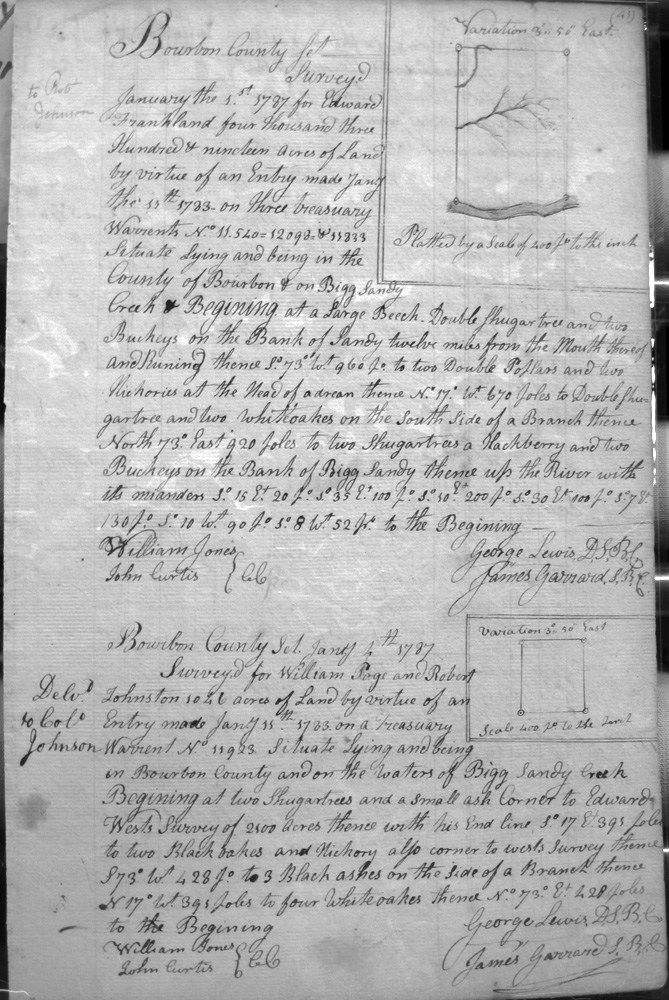 (43)
Variation 3° 50' East
Platted by a Scale of 400 po to the inch
to Robt
Johnson
Bourbon County Set
Survey'd
January the 1st 1787 for Edward
Frankland four thousand three
Hundred & nineteen Acres of Land
by virtue of an Entry made Jany
the 11th 1783 on three treasuary
Warrents No 11540=12098-& 11933
Situate Lying and being in the
County of Bourbon & on Bigg Sandy
Creek & Begining at a Large Beech. Double Shugartree and two
Buckeys on the Bank of Sandy twelve miles from the Mouth thereof
and Runing thence So 73° Wt 960 po to two Double Poplars and two
Hickories at the Head of a drean thence No 17° Wt 670 poles to Double Shu-
gartree and two Whiteoakes on the South Side of a Branch thence
North 73° East 920 poles to two Shugartrees a Hackberry and two
Buckeys on the Bank of Bigg Sandy thence up the River with
its mianders So 15 Et 20 po So 35 Et 100 po So 50 Et 200 po So 30 Et 100 po So 7 Et
130 po So 10 Wt 90 po So 8 Wt 52 po to the Begining
William Jones
John Curtis } CC
George Lewis D.S.B.C
James Garrard S.B.C.
Variation 3° 50' East
Scale 400 po to the Inch
Bourbon County Set. Jany 4th 1787
Survey'd for William Page and Robert
Delv'd
to Colo
Johnson
Johnston 1046 acres of Land by virtue of an
Entry made Jany 11th 1783 on a Treasuary
Warrent No 11923 Situate Lying and being
in Bourbon County and on the waters of Bigg Sandy Creek
Begining at two Shugartrees and a small ash Corner to Edward
Wests Survey of 2500 Acres thence with his End line So 17 Et 391 poles
to two Black oakes and Hickory also corner to wests Survey thence
S 73° Wt 428 po to 3 Black ashes on the Side of a Branch thence
N 17° Wt 391 poles to four Whiteoakes thence No 73° Et 428 poles
to the Begining
George Lewis D.S.B.C
William Jones
John Curtis } CC
James Garrard S.B.C